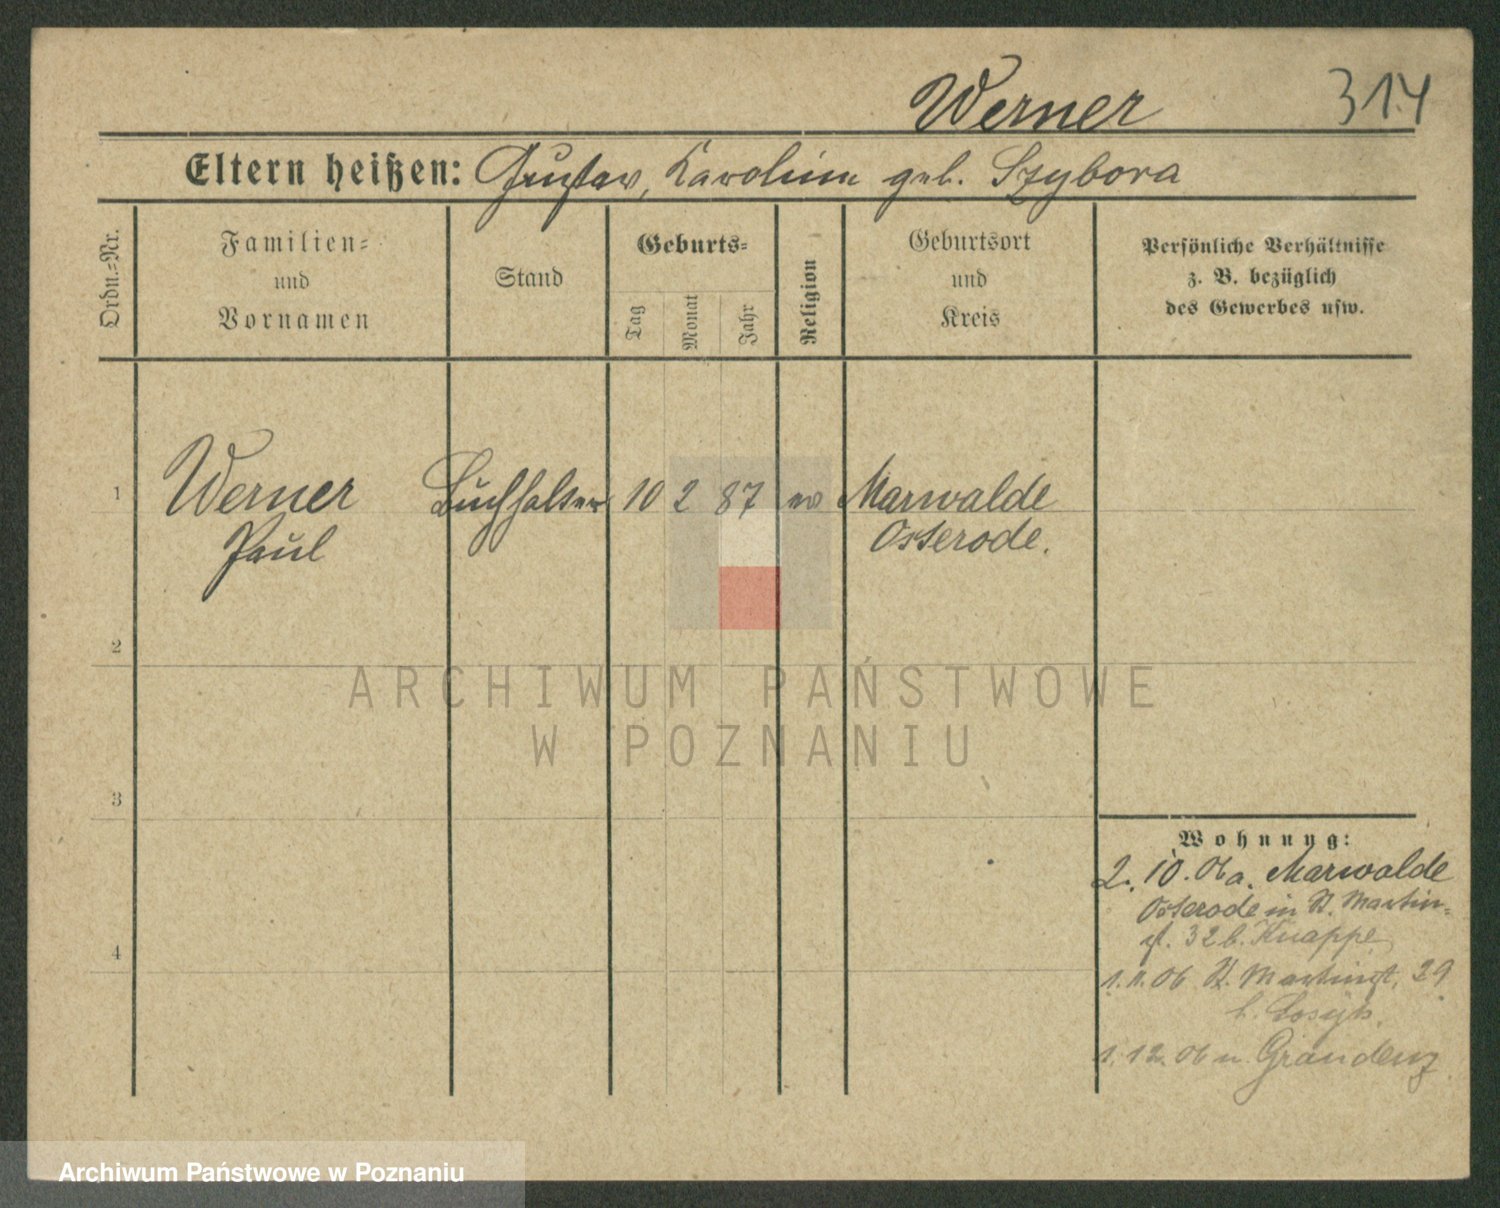 Werner 314
Eltern heißen: Gustav, Karoline geb. Szybora
Ordn.=Nr.
Familien=
und
Vornamen
Stand
Geburts=
Tag
Monat
Jahr
Religion
Geburtsort
und
Kreis
Persönliche Verhältnisse
z. B. bezüglich
des Gewerbes usw.
1 Werner Buchhalter 10 2 87 ev Marwalde
Paul Osterode.
2
3
4
Wohnung:
2. 10. 06 a. Marwalde
Osterode in St. Martin=
st. 32 b. Knappe
1. 11. 06 St. Martinst. 29
b.
1. 12. 06 n. Graudenz
ARCHIWUM PAŃSTWOWE
W POZNANIU
Archiwum Państwowe w Poznaniu